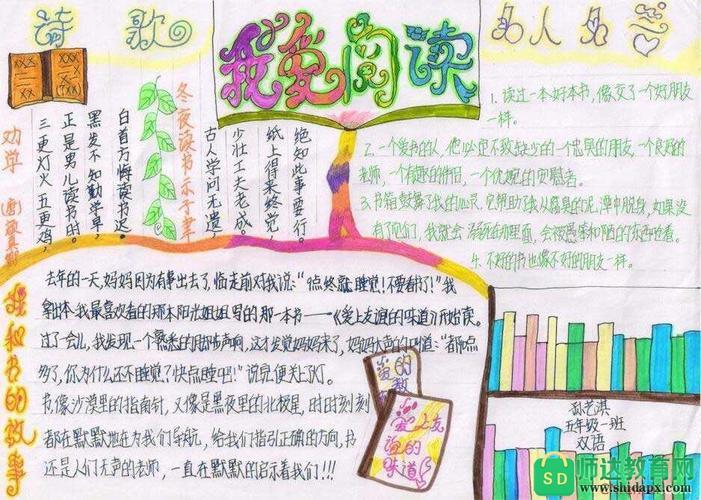 诗歌
我爱阅读
名人名言
劝学(唐)颜真卿
三更灯火五更鸡,
正是男儿读书时。
黑发不知勤学早,
白首方悔读书迟。
冬夜读书示子聿
古人学问无遗,
少壮工夫老成。
纸上得来终觉,
绝知此事要行。
1. 读过一本好书,像交了一个好朋友
一样。
2. 一个爱书的人,他必定不致缺少一个忠实的朋友,一个良好的
老师,一个有趣的伴侣,一个优婉的安慰者。
没有它们,我就会
4. 不好的书也像不好的朋友一样。
我和书的故事
去年的一天,妈妈因为有事出去了,临走前对我说:“9点终就睡觉!不要看书了!”我
拿出本我最喜欢看的那本阳光姐姐写的那一本书——《爱上友谊的味道》开始读。
过了会儿,我发现一个熟悉的脚步声响,这才发觉妈妈来了,妈妈大声的叫道:“都10点
多了,你为什么还不睡觉?快点睡吧!”说完便关上灯。
书,像沙漠里的指南针,又像是黑夜里的北极星,时时刻刻
都在默默地在为我们导航,给我们指引正确的方向,书
还是人们无声的老师,一直在默默的启示着我们!!!
爱上友谊的味道
孙艺淇
五年级一班
双语
SD
师达教育网
www.shidapx.com